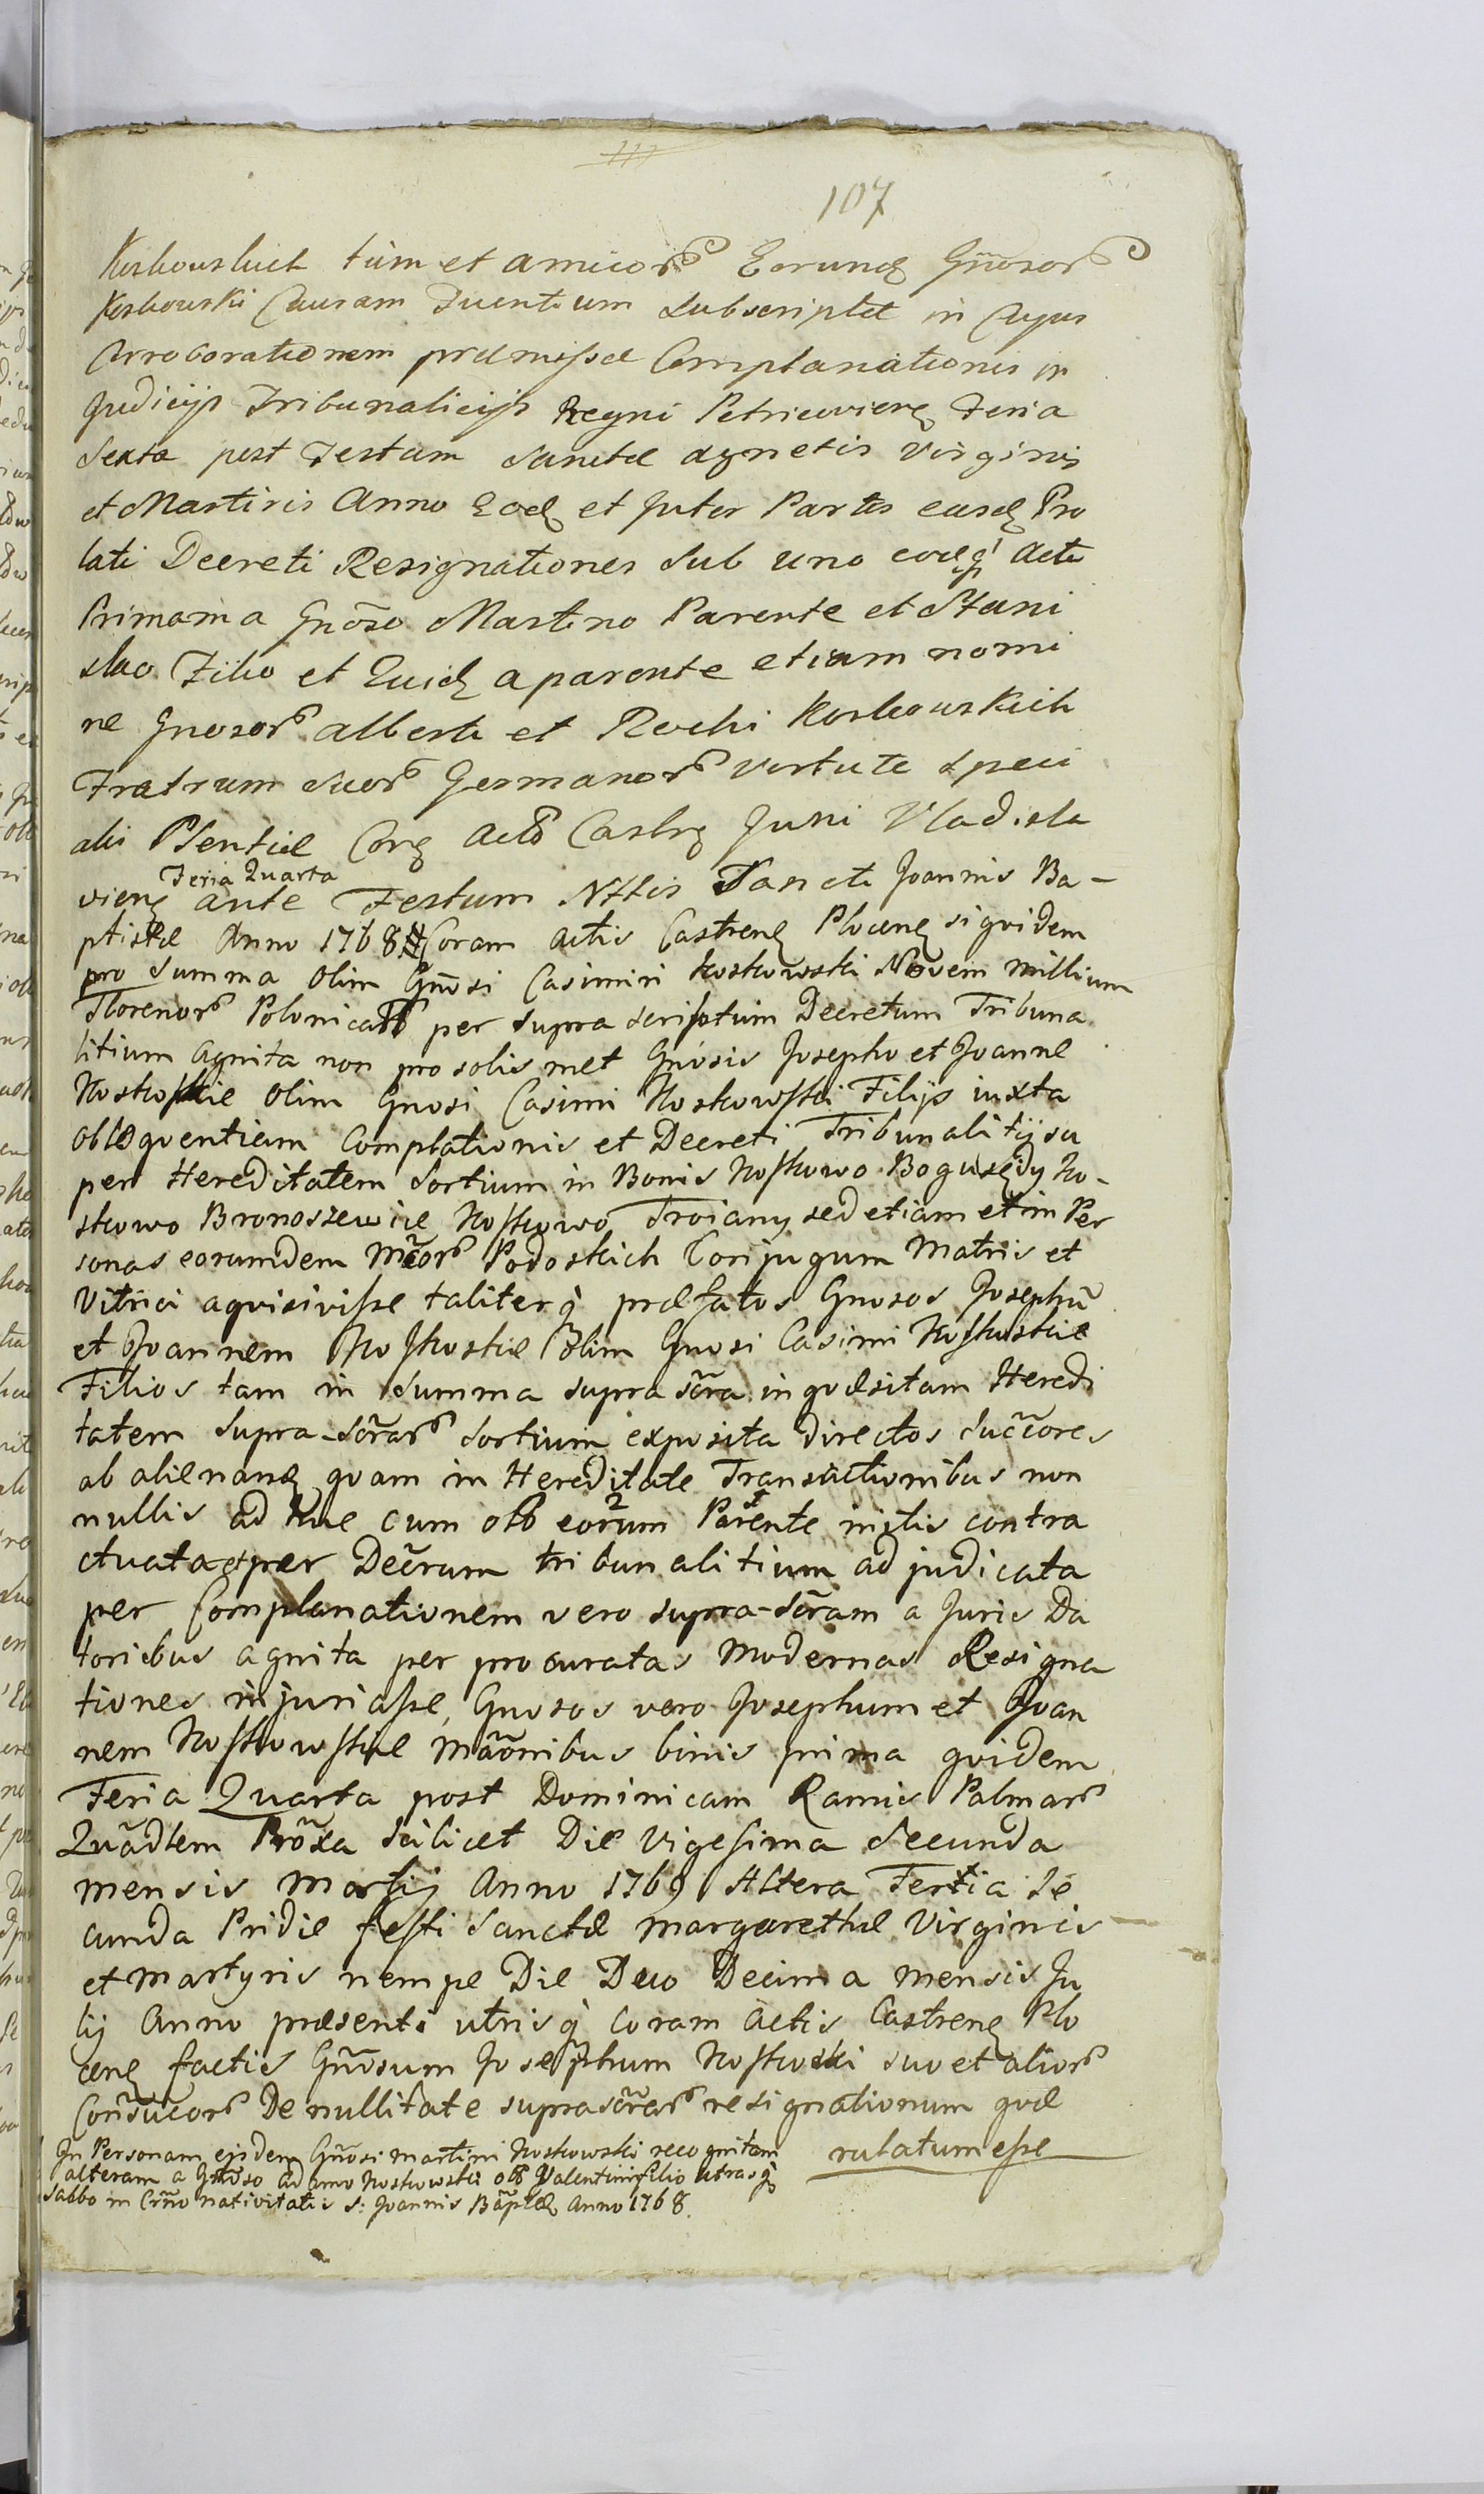 107
Koskowskich tùm et amicor Eorund Gnosor
Koskowski Causam Juentium Subscriptae in Cujus
Corroborationem praemissae Complanationis in
Judicijs Tribunalicijs Regni Petricovien Feria
Sexta post Festum Sanctae Agnetis Virginis
et Martiris Anno Eod et Inter Partes easd Pro
lati Decreti Resignationes Sub uno eodq Acto
Primam a Gnõso Martino Parente et Stani
slao Filio et Quid a parente etiam nomi
ne Gnosor Alberti et Rochi Koskowskich
Fratrum Suor Germanor virtute Speci
alis Plentiae Cor Actis Castr Juni Vladisla
vien Feria Quarta ante Festum Nttis Sancti Joannis Ba-
ptistae Anno 1768 # Coram Actis Castren Plocen siquidem
pro Summa Olim Gnõsi Casimiri Koskowski Novem millium
Florenor Polonical per Supra Scriptum Decretum Tribuna
litium Agnita non pro solis met Gnosis Josepho et Joanne
Koskoskie Olim Gnosi Casimi Koskowski Filijs iuxta
obloquentiam Complationis et Decreti Tribunalitij su
per Hereditatem Sortium in Bonis Koskowo Bogusędy Ko-
skowo Bronoszewice Koskowo Troiany sed etiam et in Per
sonas eorumdem Mcor Podoskich Conjugum Matris et
Vitrici aqvisivisse taliterq praefatos Gnosos Josephũ
et Joannem Koskoskie Olim Gnosi Casimi Koskoskie
Filios tam in Summa supra scra in qvaesitam Heredi
tatem Supra-scrar Sortium exposita directos Succores
ab alienand qvam in Hereditate Transactionibus non
nullis ad huc cum olb eorum Parente initis contra
ctuata et per Decrum tribunalitium ad judicata
per Complanationem vero supra-scram a Juris Da
toribus agnita per procuratas Modernas Resigna
tiones injuriasse, Gnosos vero Josephum et Joan
nem Koskowskie Mãonibus binis prima qvidem
Feria Quarta post Dominicam Ramis Palmar
Quãdlem Prõxa Scilicet Die Vigesima Secunda
mensis Martij Anno 1769 Altera Fertia Se
cunda Pridie festi Sanctae Margarethae Virginis
et Martyris nempe Die Duo Decima mensis Ju
lij Anno praesenti utrisq coram Actis Castren Plo
cen factis Gnõsum Josephum Koskoski suo et alior
Consucor De nullitate suprascrar resignationum qvae
In Personam ejsdem Gnõsi Martini Koskowski recognitam
alteram a Gnõso Adamo Koskowski olb Valentini filio utrasq
Sabbo in Crno nativitatis S: Joannis Bãptae Anno 1768.
rulatum esse